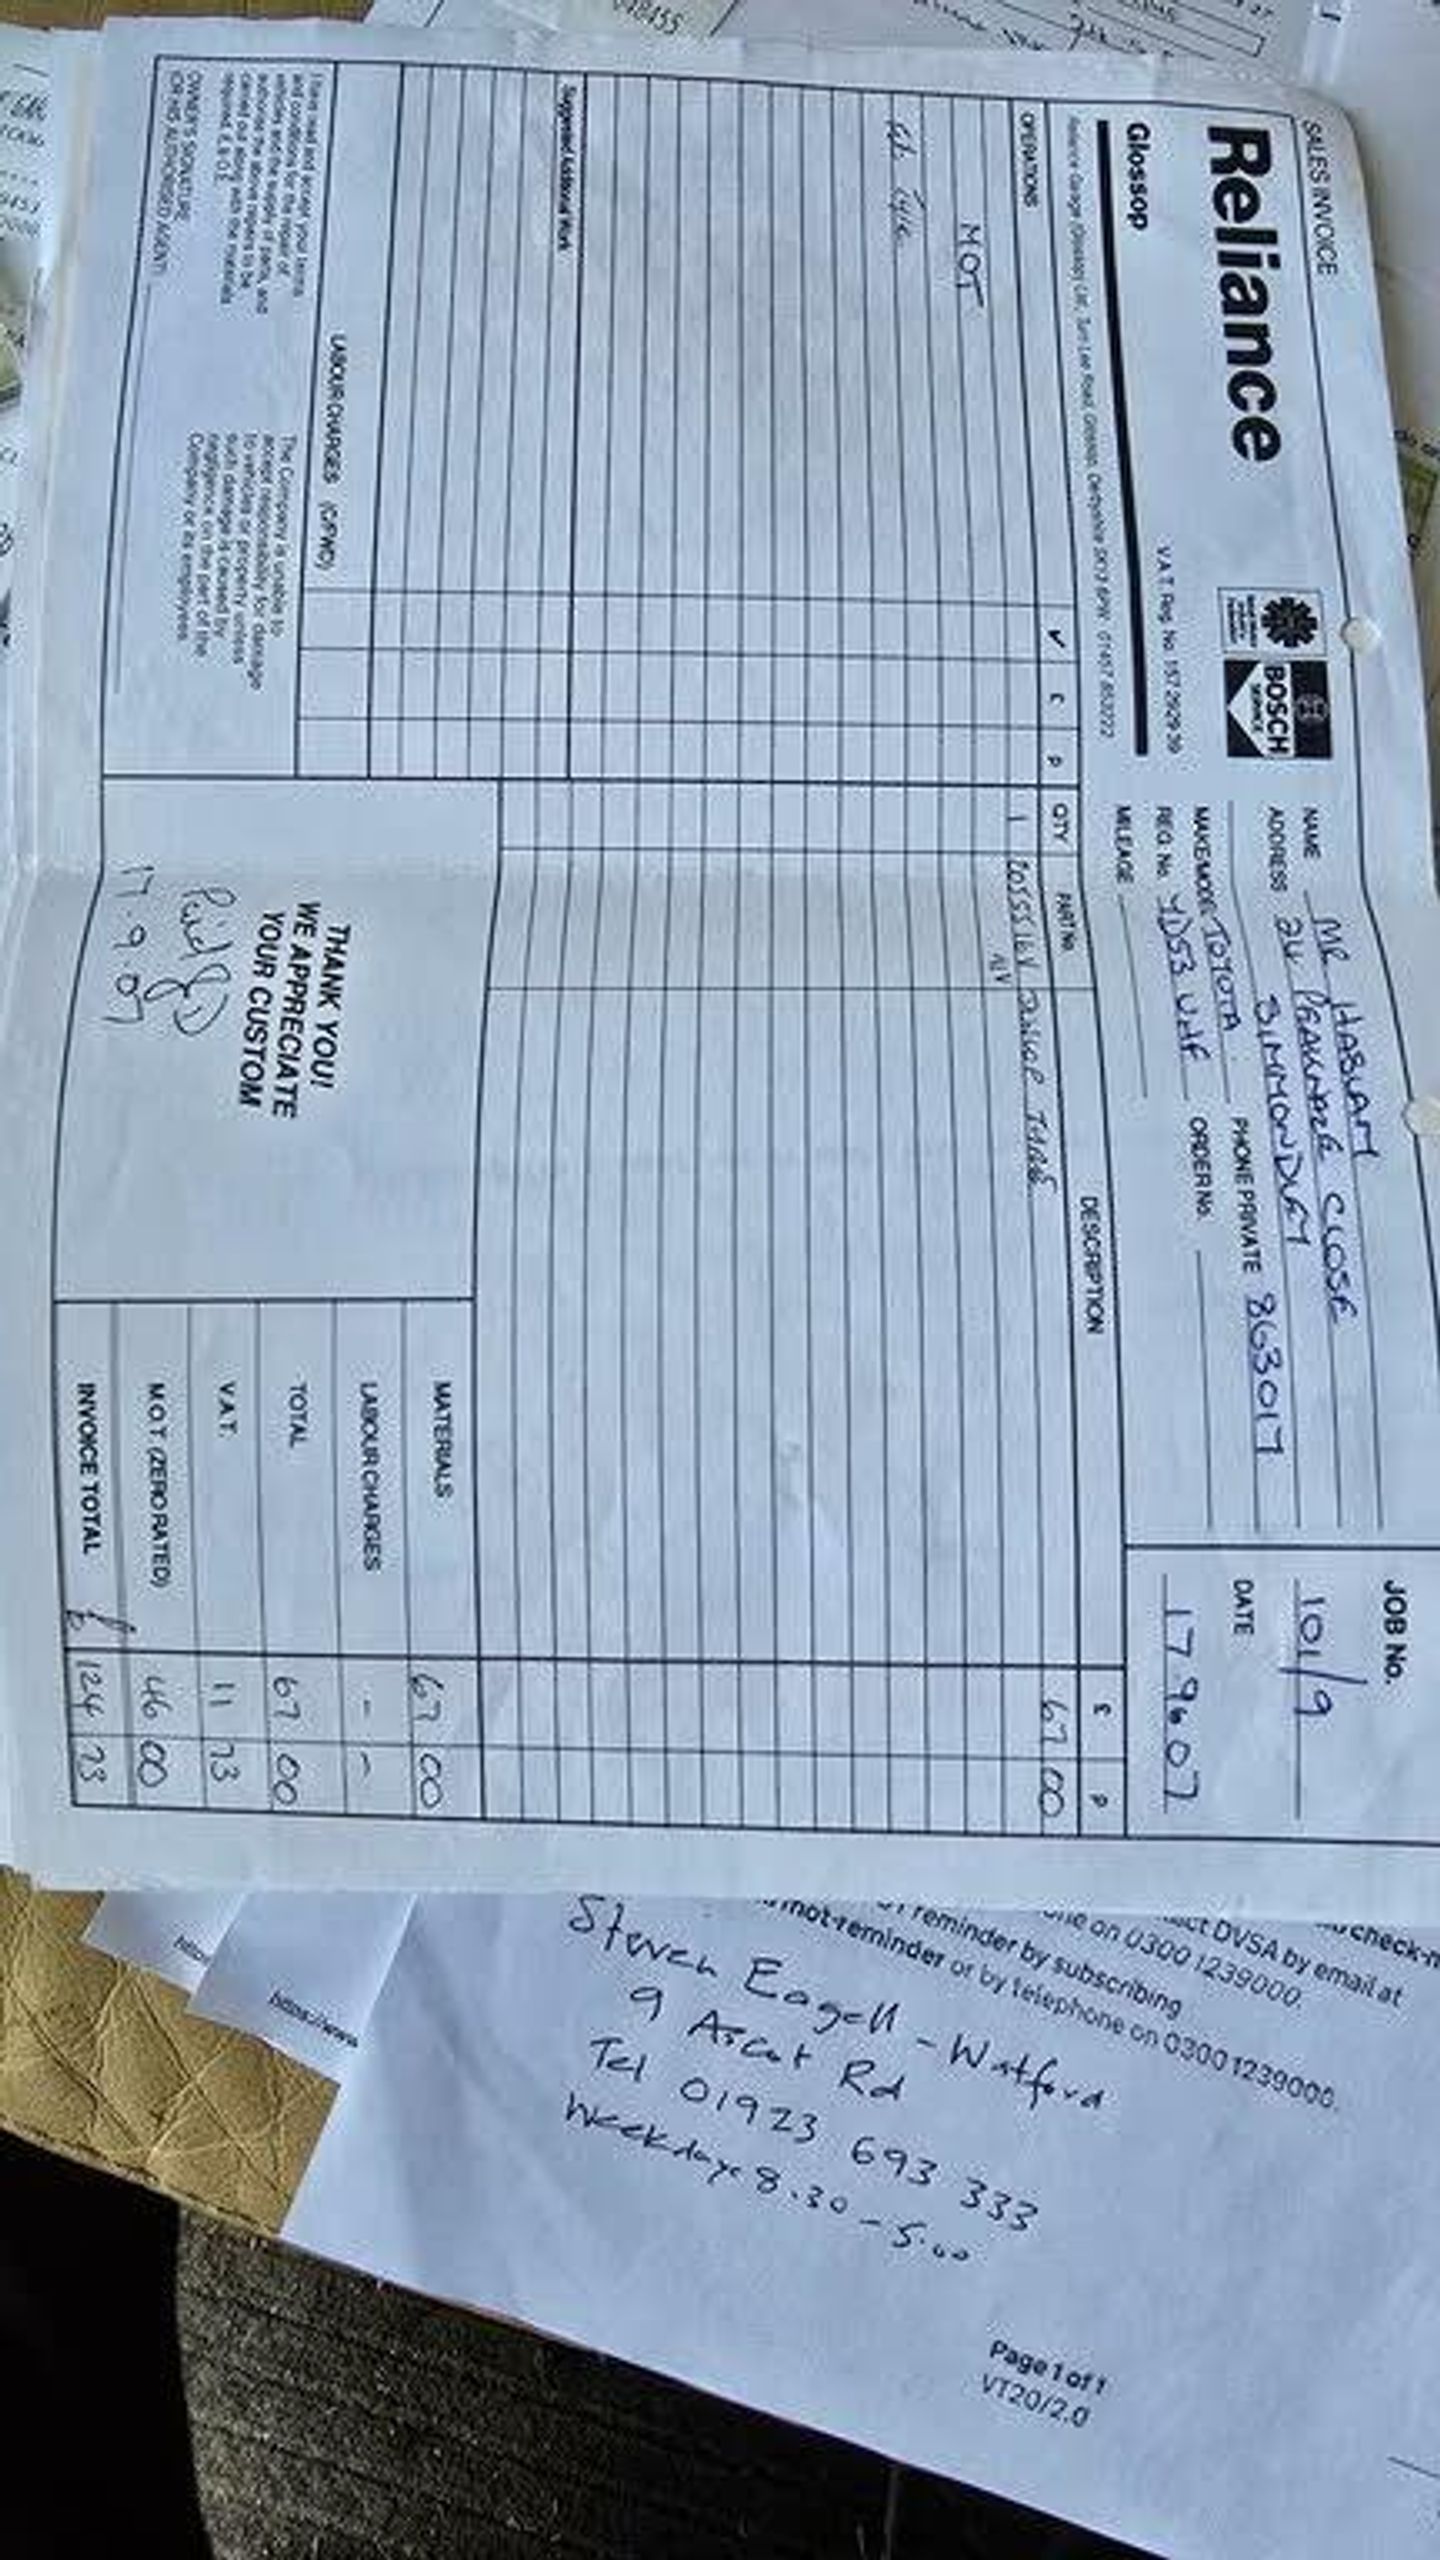 SALES INVOICE
Reliance
BOSCH
SERVICE
Glossop
V.A.T. Reg. No. 157 2929 39
Reliance Garage (Glossop) Ltd., Turn Lee Road, Glossop, Derbyshire SK13 6PW 01457 853222
NAME MR HASLAM
ADDRESS 24 CLOSE
SIMMONDLEY
PHONE PRIVATE 863017
MAKE/MODEL TOYOTA
REG. No. YD53 UHF
ORDER No.
MILEAGE
JOB No.
101/9
DATE
17.9.07
OPERATIONS ✓ £ p
MOT
QTY PART No. DESCRIPTION £ p
1 2055516V DUNLOP TYRE 67 00
Suggested Additional Work
LABOUR CHARGES (C/FWD)
I have read and accept your terms
and conditions for the repair of
vehicles and the supply of parts, and
authorise the above repairs to be
carried out along with the materials
required. E & O E
OWNER'S SIGNATURE
OR HIS AUTHORISED AGENT
The Company is unable to
accept responsibility for damage
to vehicles or property unless
such damage is caused by
negligence on the part of the
Company or its employees
THANK YOU!
WE APPRECIATE
YOUR CUSTOM
Paid
17.9.07
MATERIALS 67 00
LABOUR CHARGES - -
TOTAL 67 00
V.A.T. 11 73
M O T (ZERO RATED) 46 00
INVOICE TOTAL £ 124 73
act DVSA by email at
one on 0300 1239000.
reminder by subscribing
mot-reminder or by telephone on 0300 1239000.
Steven Eagell - Watford
9 Ascot Rd
Tel 01923 693 333
Weekdays 8.30 - 5.00
https://www
Page 1 of 1
VT20/2.0